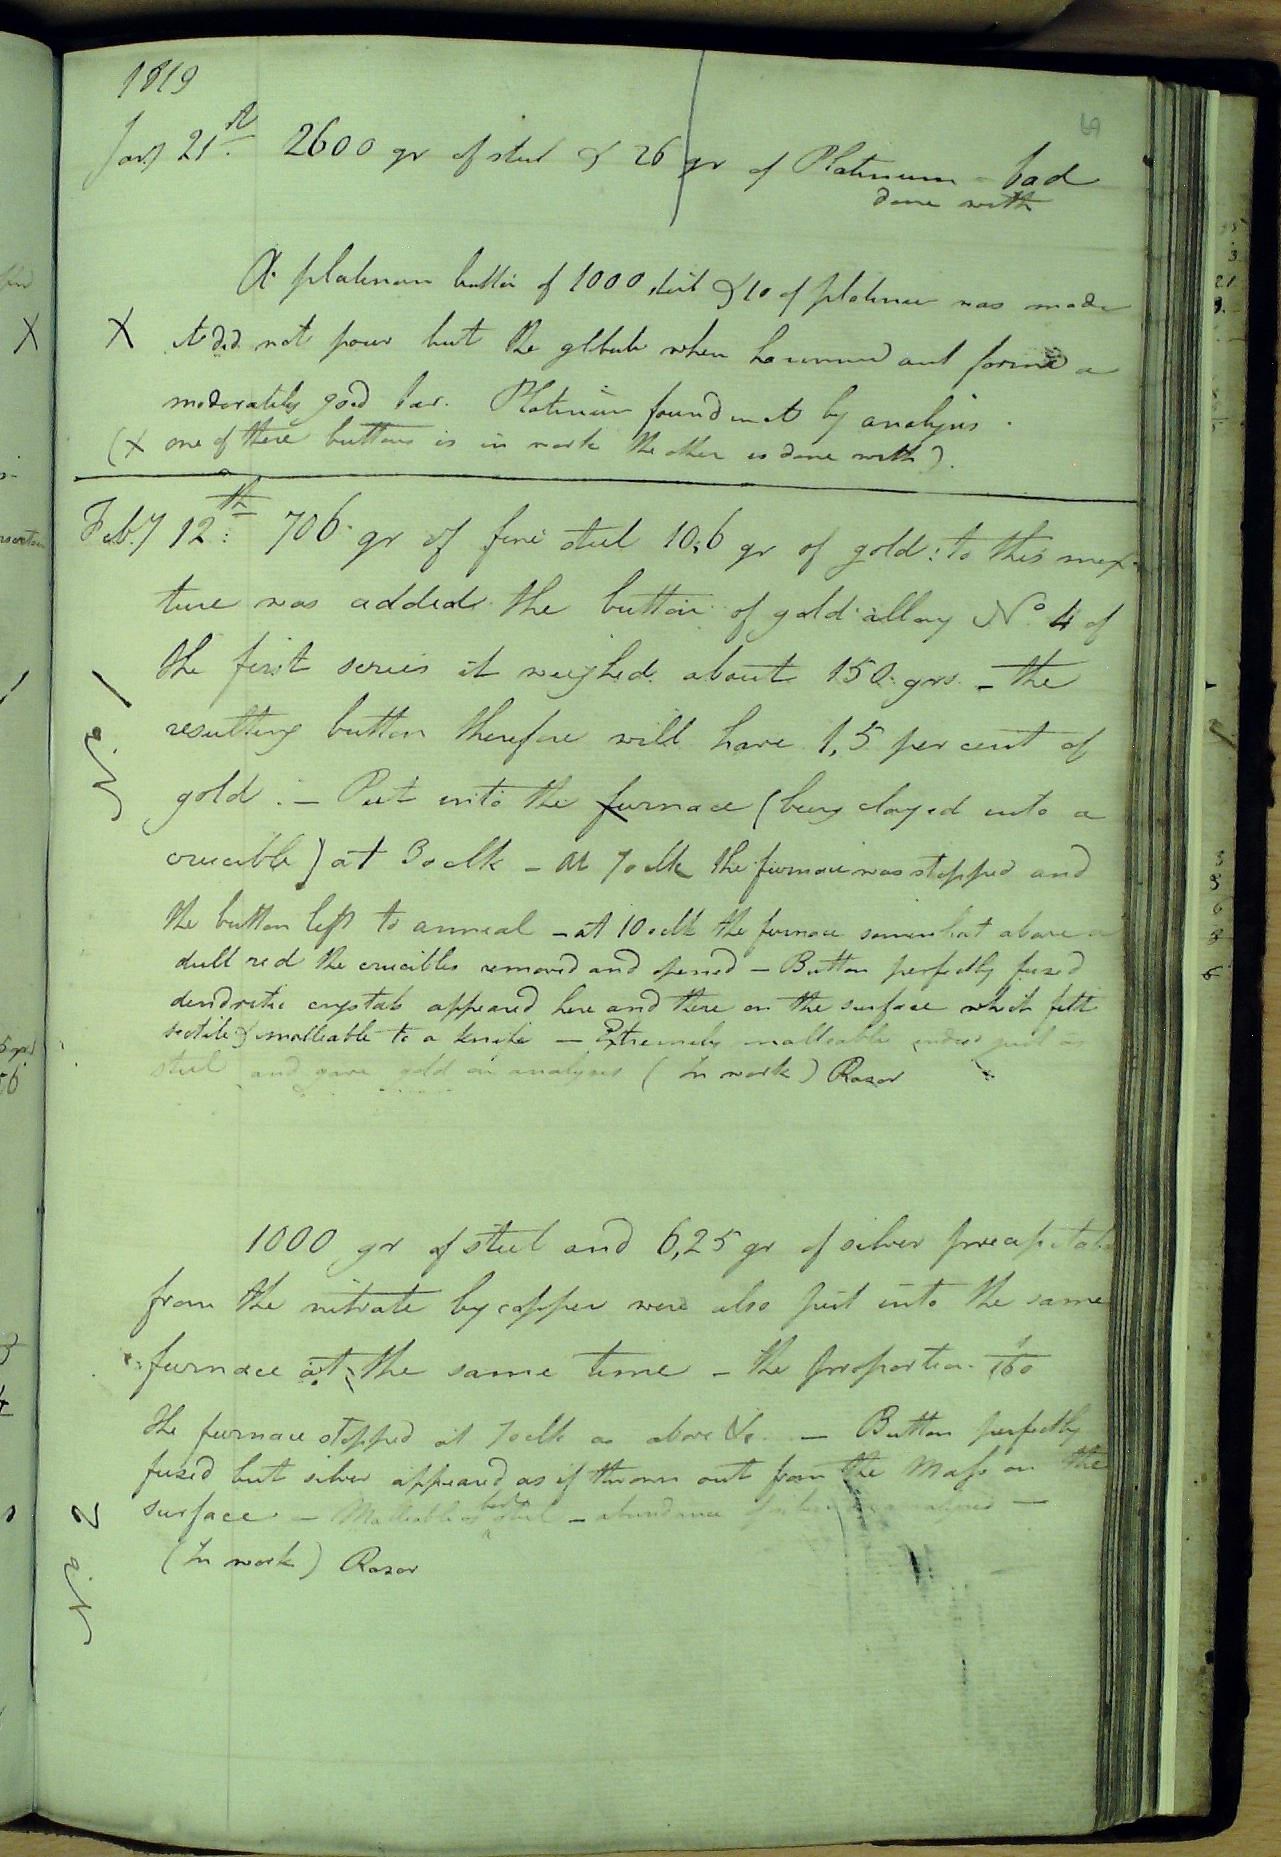 1819
69
Jany 21st 2600 gr of steel & 26 gr of Platinum - bad
done with
A platinum button of 1000 steel & 10 of platinum was made
X it did not pour but the globule when hammered out formed a
moderately good bar. Platinum found in it by analysis.
(X one of these buttons is in work the other is done with).
Feby 12th 706 gr of fine steel 10,6 gr of gold: to this mix-
ture was added the button of gold alloy No 4 of
the first series it weighed about 150 grs. - the
No 1
resulting button therefore will have 1,5 per cent of
gold. - Put into the furnace (being clayed into a
crucible) at 3 oclk - At 7 oclk the furnace was stopped and
the button left to anneal - at 10 oclk the furnace somewhat above a
dull red the crucibles removed and opened - Button perfectly fused
dendritic crystals appeared here and there on the surface which felt
sectile & malleable to a knife - Extremely malleable just as
steel and gave gold on analysis (In work) Razor
1000 gr of steel and 6,25 gr of silver precipitated
from the nitrate by copper were also put into the same
furnace at the same time - the proportion 1/160
the furnace stopped at 7 oclk as above &c. - Button perfectly
fused but silver appeared as if thrown out from the Mass on the
surface - Malleable as best steel - abundance
No 2
(In work) Razor